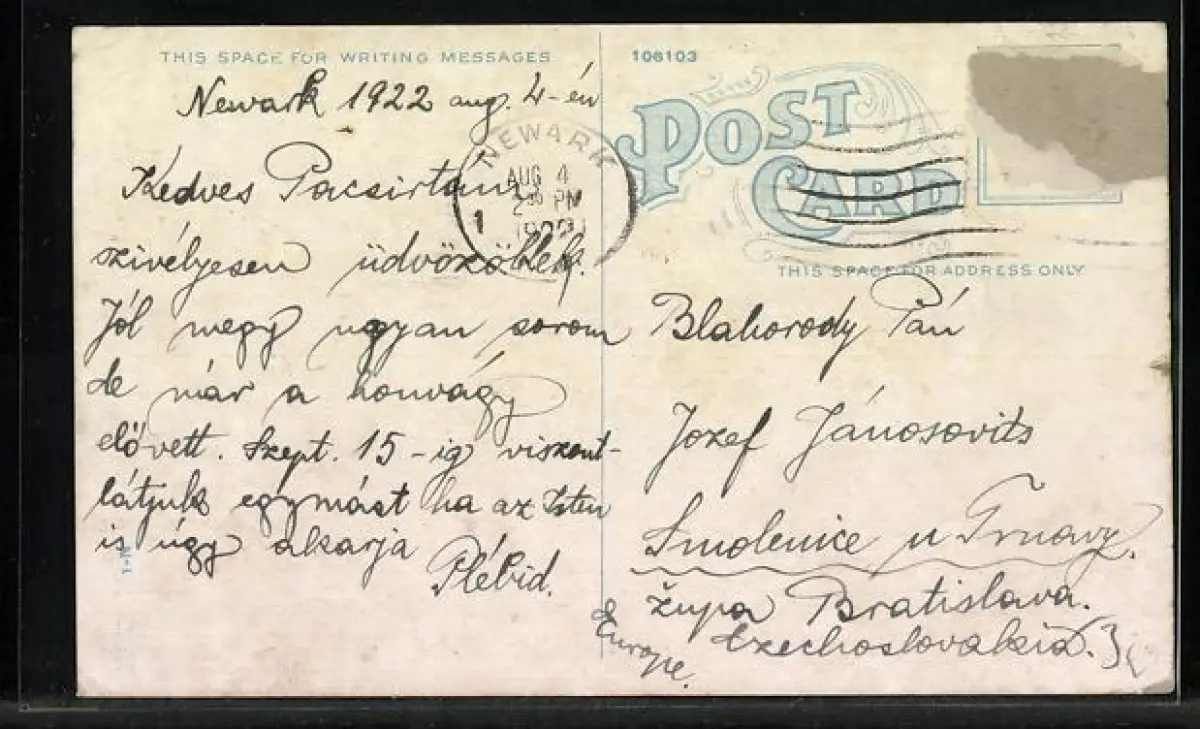 THIS SPACE FOR WRITING MESSAGES
Newark 1922 aug. 4-én
Kedves Pacsirtám
szivélyesen üdvözöllek.
Jól megy ugyan sorom
de már a honvágy
elővett. Szept. 15-ig viszont-
látjuk egymást ha az Isten
is úgy akarja
Plébid.
NEWARK
AUG 4
2 30 PM
1
108103
POST
CARD
THIS SPACE FOR ADDRESS ONLY
Blahorody Pán
Jozef Jánosovits
Smolenice u Trnavy.
župa Bratislava.
Czechoslovakia.
Europe.